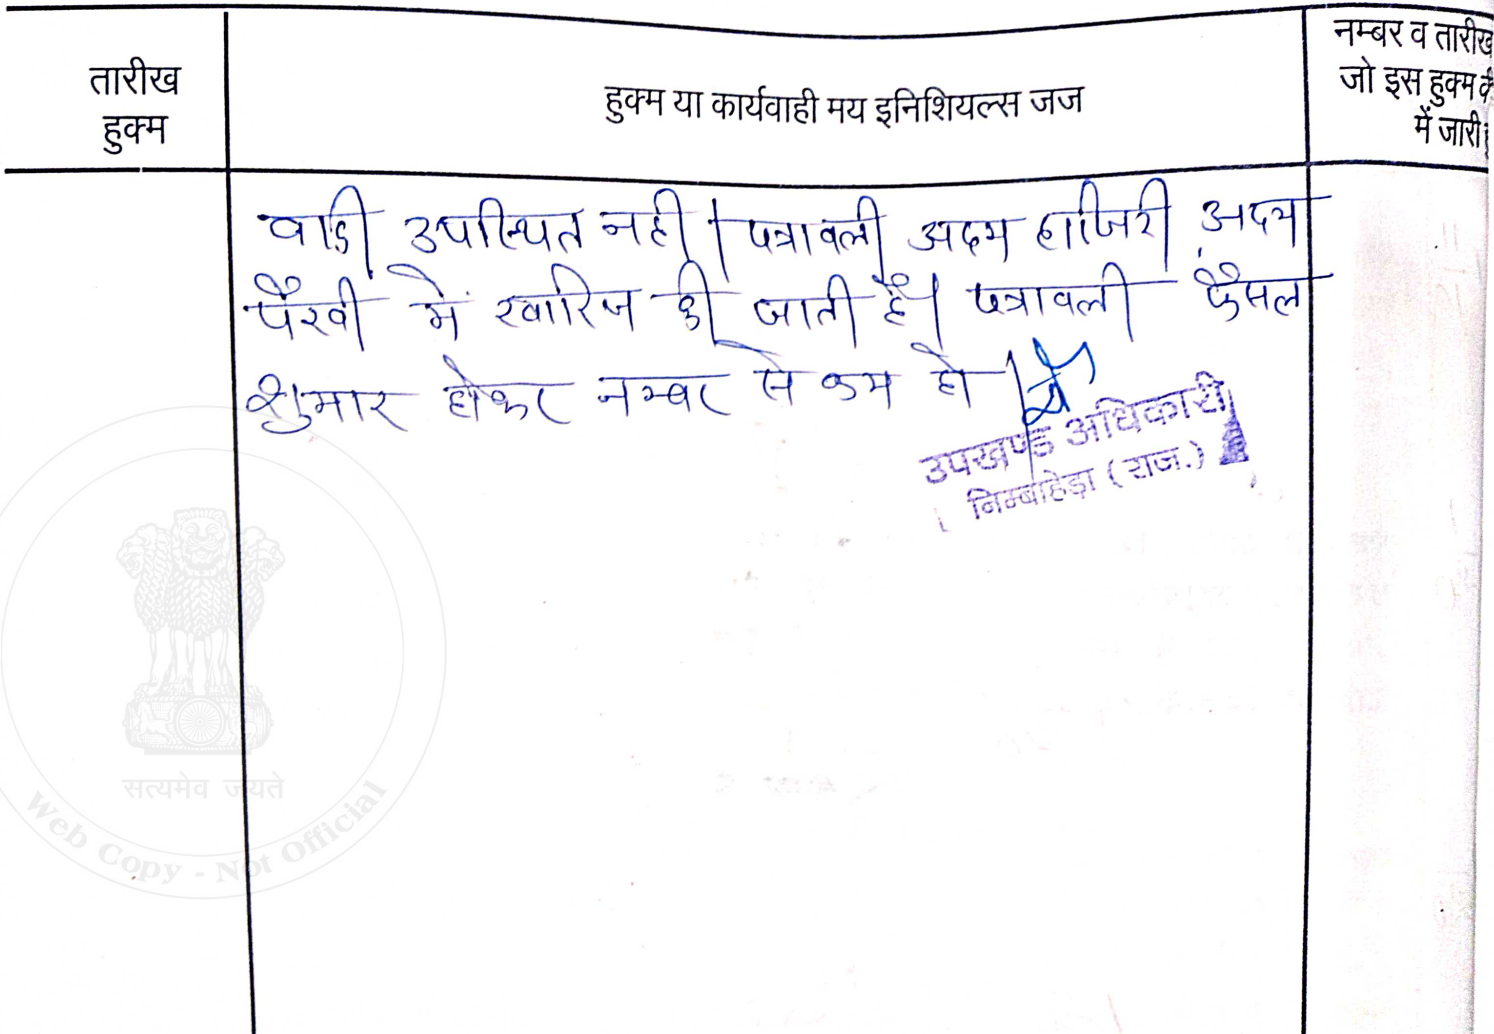 तारीख
हुक्म
हुक्म या कार्यवाही मय इनिशियल्स जज
नम्बर व तारीख
जो इस हुक्म
में जारी
वादी उपस्थित नही । पत्रावली अदम हाजिरी अदम
पैरवी में खारिज की जाती है। पत्रावली फैसल
शुमार होकर नम्बर से कम हो ।
उपखण्ड अधिकारी
निम्बाहेड़ा (राज.)
सत्यमेव जयते
Web Copy - Not Official